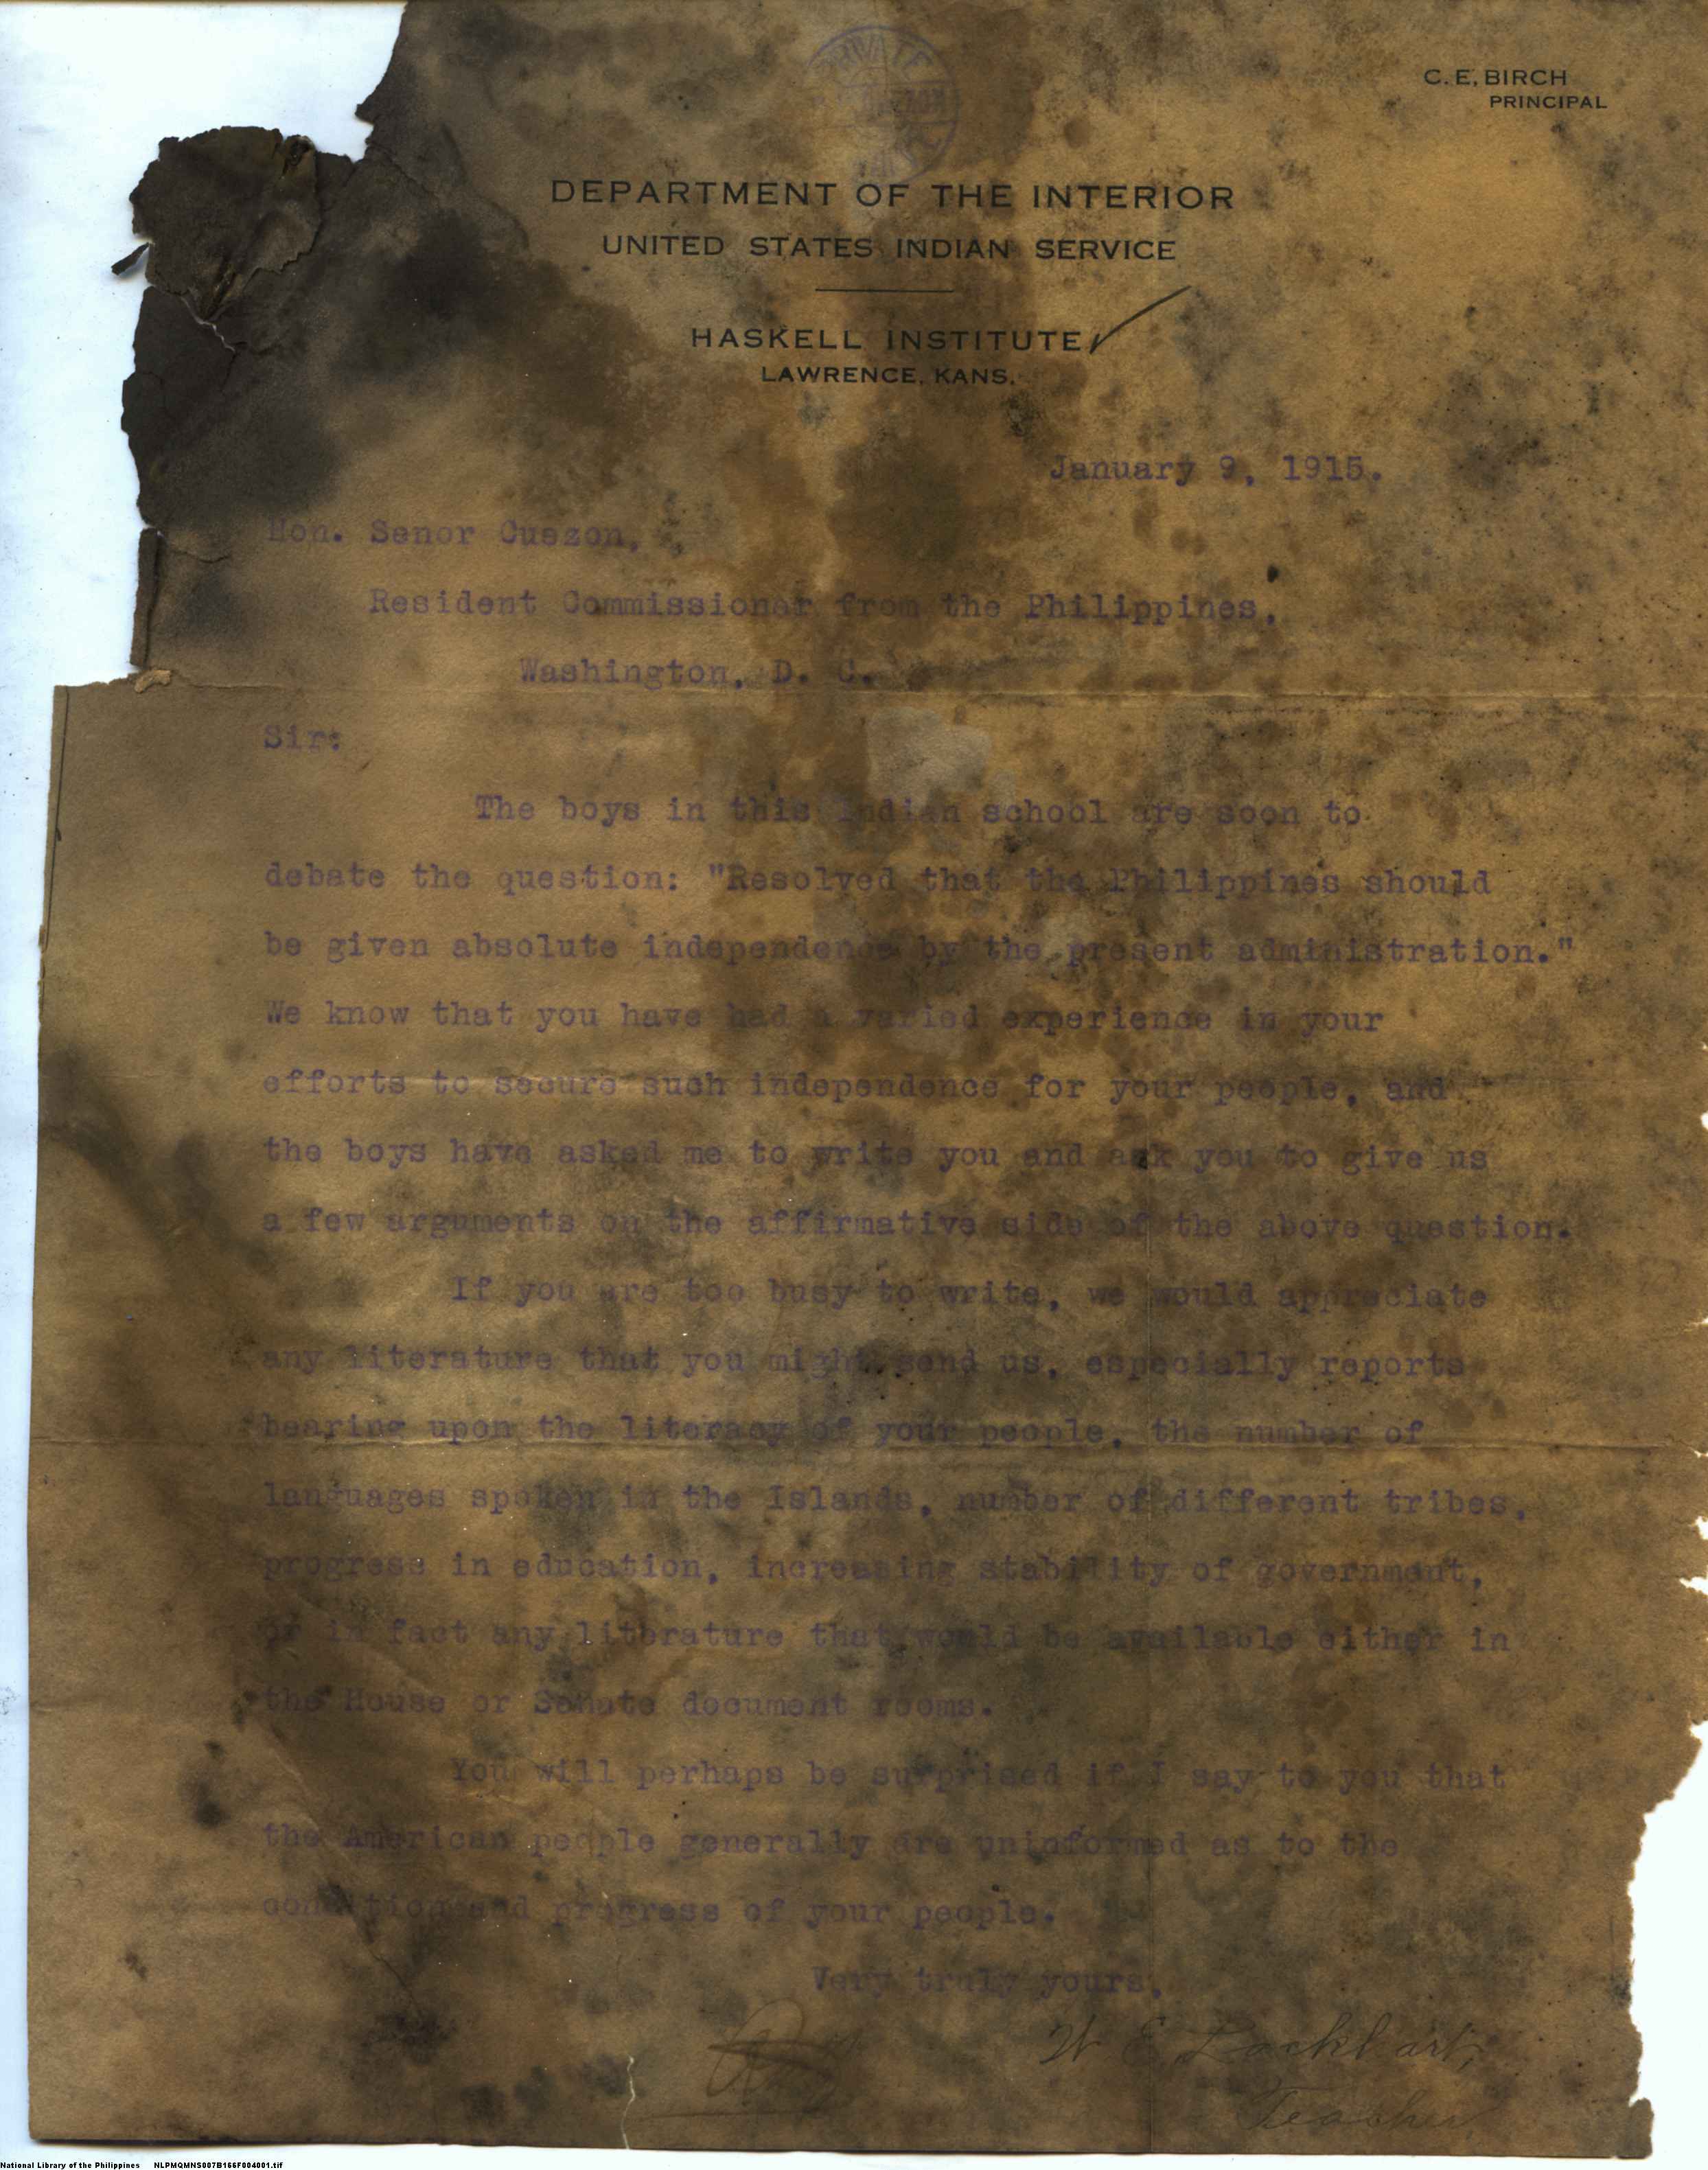 PRIVATE
C. E. BIRCH
PRINCIPAL
DEPARTMENT OF THE INTERIOR
UNITED STATES INDIAN SERVICE
HASKELL INSTITUTE
LAWRENCE, KANS.
January 9, 1915.
Hon. Senor Cuezon,
Resident Commissioner from the Philippines,
Washington, D. C.
Sir:
The boys in this Indian school are soon to
debate the question: "Resolved that the Philippines should
be given absolute independence by the present administration."
We know that you have had a varied experience in your
efforts to secure such independence for your people, and
the boys have asked me to write you and ask you to give us
a few arguments on the affirmative side of the above question.
If you are too busy to write, we would appreciate
any literature that you might send us, especially reports
bearing upon the literacy of your people, the number of
languages spoken in the Islands, number of different tribes,
progress in education, increasing stability of government,
or in fact any literature that would be available either in
the House or Senate document rooms.
You will perhaps be surprised if I say to you that
the American people generally are uninformed as to the
condition and progress of your people.
Very truly yours,
W E Lockhart,
Teacher
National Library of the Philippines NLPMQMNS007B166F004001.tif